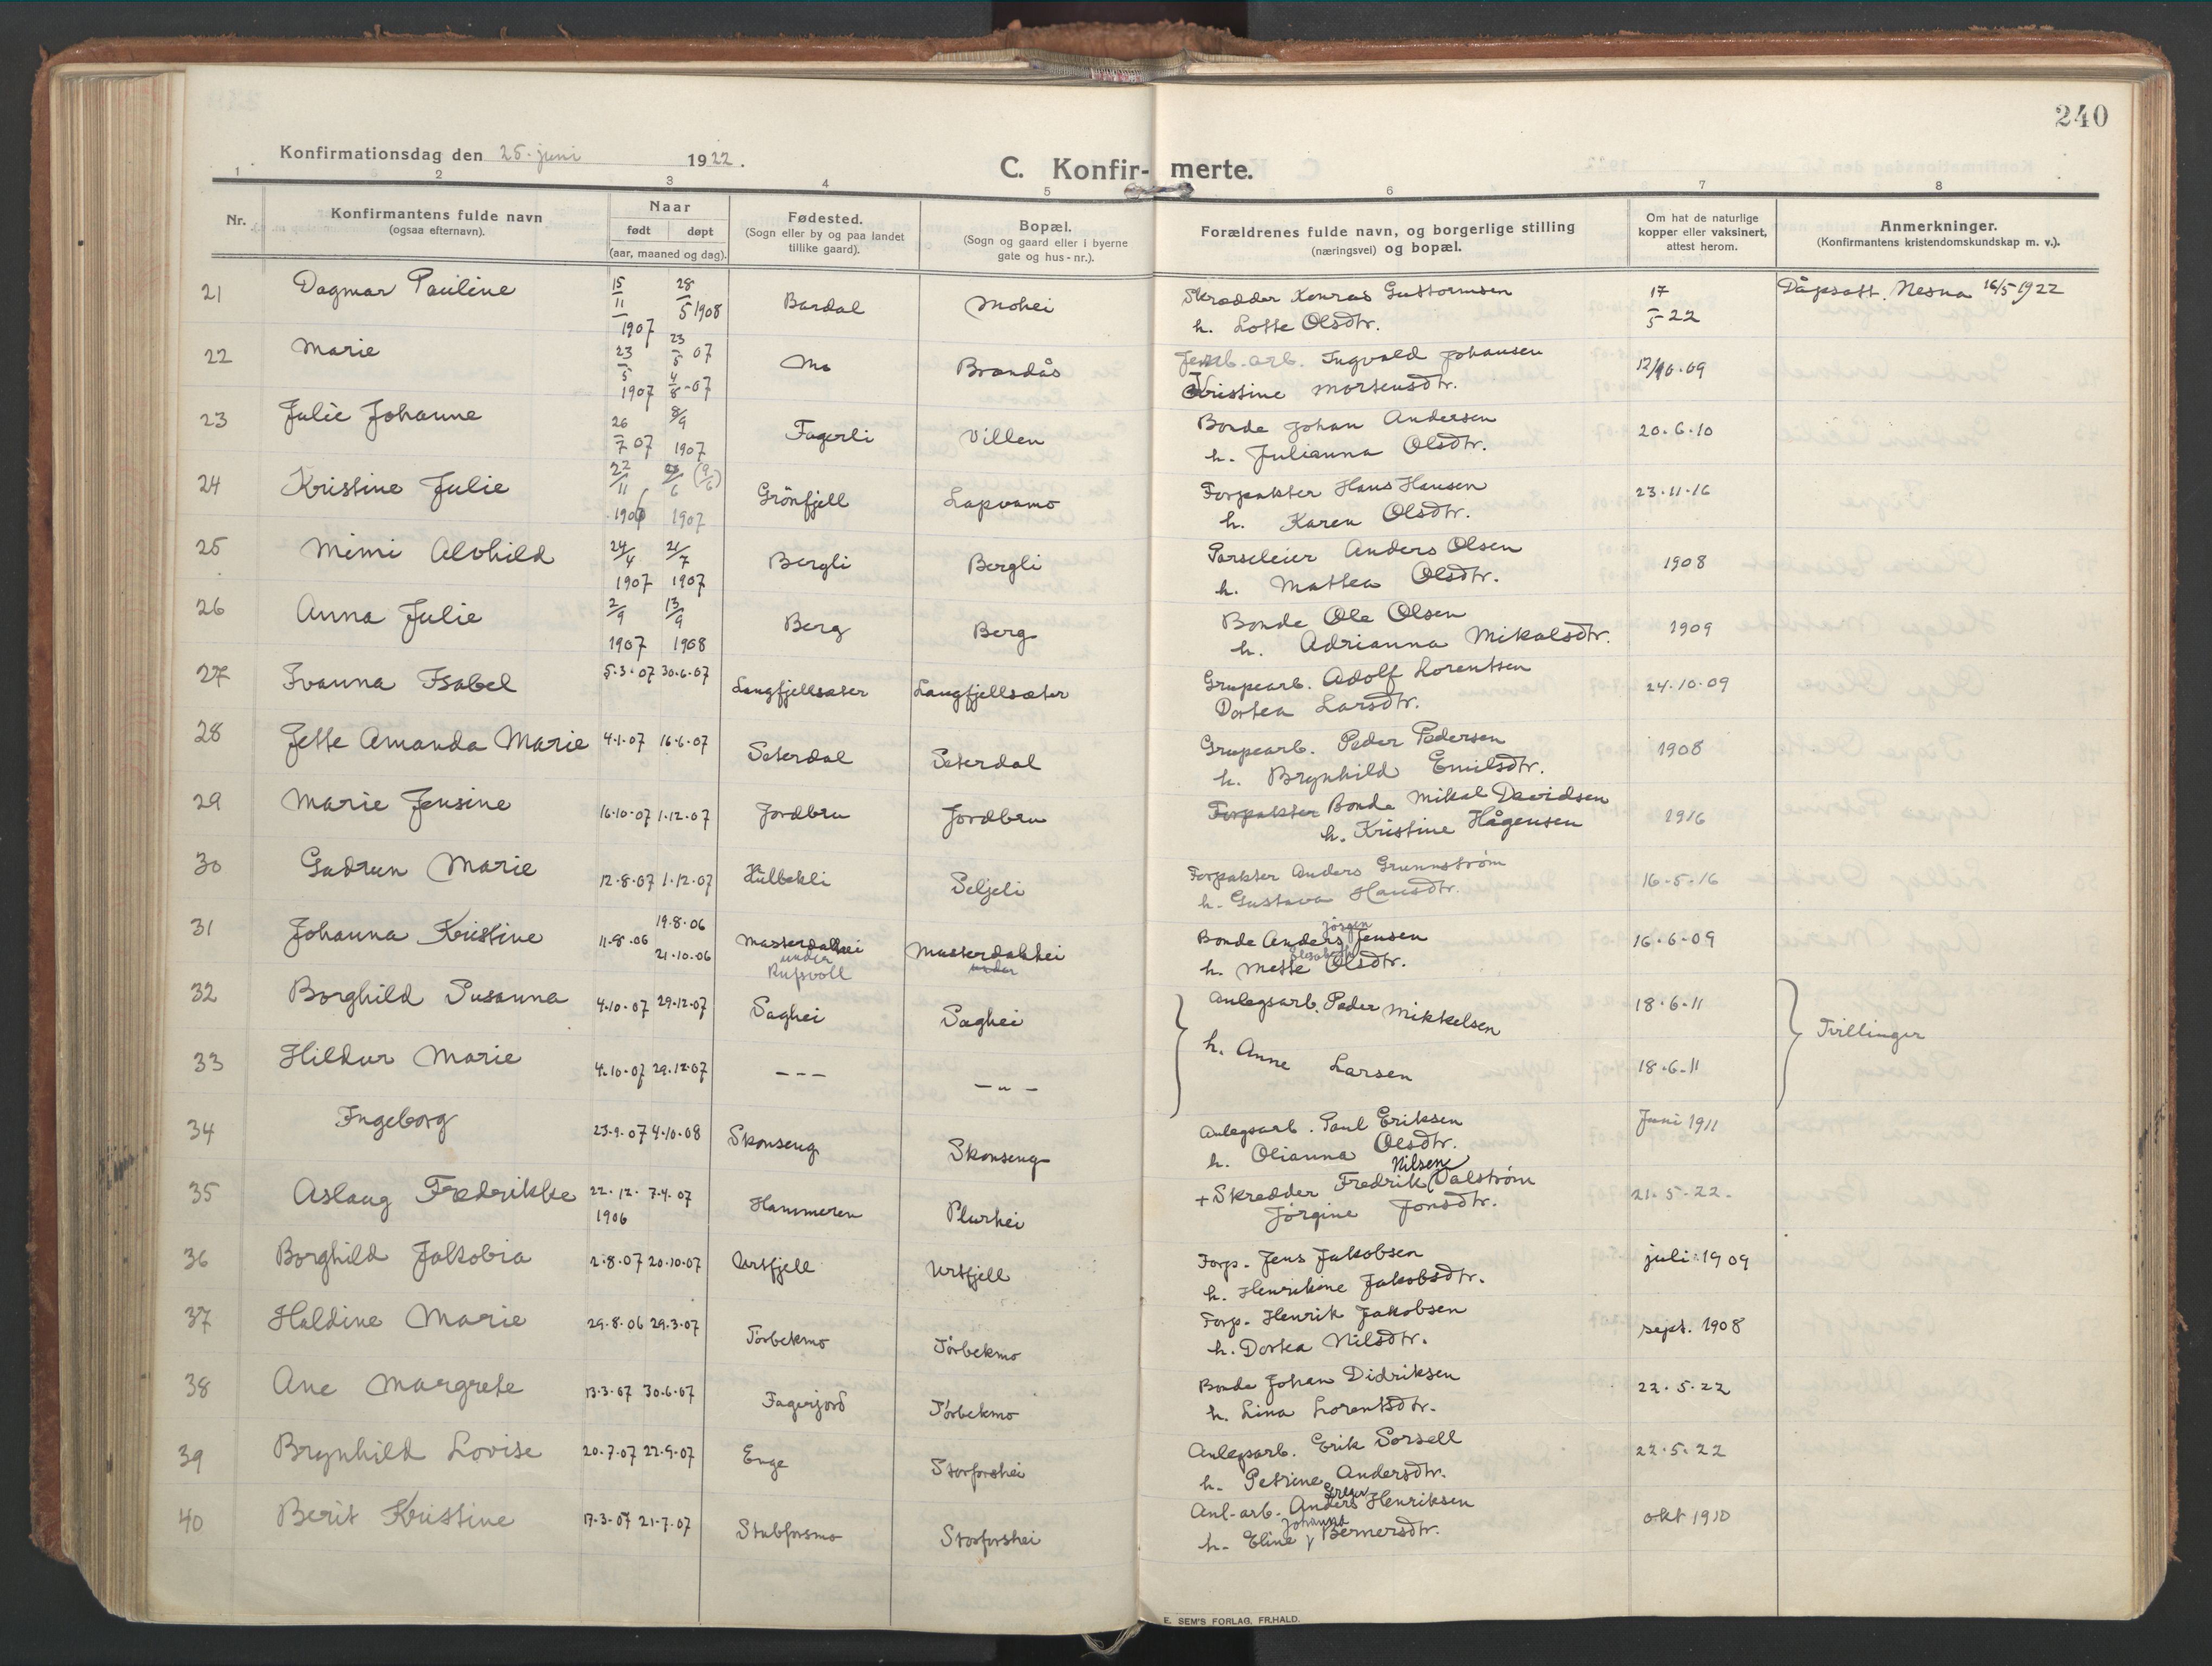 240
Konfirmationsdag den 25. juni 1922.
C. Konfir- merte.
1 2 3 4 5 6 7 8
Nr.
Konfirmantens fulde navn
(ogsaa efternavn).
Naar
født døpt
(aar, maaned og dag).
Fødested.
(Sogn eller by og paa landet
tillike gaard).
Bopæl.
(Sogn og gaard eller i byerne
gate og hus-nr.).
Forældrenes fulde navn, og borgerlige stilling
(næringsvei) og bopæl.
Om hat de naturlige
kopper eller vaksinert,
attest herom.
Anmerkninger.
(Konfirmantens kristendomskundskap m. v.).
21 Dagmar Pauline 15/11 1907 28/5 1908 Bardal Mohei Skrædder Konrad Guttormsen 17/5 22 Dåpsatt. Nesna 16/5 1922
h. Lotte Olsdtr.
22 Marie 23/5 1907 23/5 07 4/8-07 Mo Brandås Jernb. arb. Ingvald Johansen 12/10.09
Kristine Mortensdtr.
23 Julie Johanne 26/7 07 8/9 1907 Fagerli Villen Bonde Johan Andersen 20.6.10
h. Julianna Olsdtr.
24 Kristine Julie 22/11 1906 /6 (9/6) 1907 Grönfjell Lapvamo Forpakter Hans Hansen 23.11.16
h. Karen Olsdtr.
25 Mimi Alvhild 24/4 1907 21/7 1907 Bergli Bergli Parseleier Anders Olsen 1908
h. Mattea Olsdtr.
26 Anna Julie 2/9 1907 13/9 1908 Berg Berg Bonde Ole Olsen 1909
h. Adrianna Mikalsdtr.
27 Ivanna Isabel 5.3.07 30.6.07 Langfjellsæter Langfjellsæter Grupearb. Adolf Lorentsen 24.10.09
Dortea Larsdtr.
28 Jette Amanda Marie 4.1.07 16.6.07 Seterdal Seterdal Grupearb. Peder Pedersen 1908
h. Brynhild Emilsdtr.
29 Marie Jensine 16.10.07 1.12.07 Jordbru Jordbru Forpakter Bonde Mikal Davidsen 1916
h. Kristine Hågensen
30 Gudrun Marie 12.8.07 1.12.07 Hulbekli Seljeli Forpakter Anders Grunnstrøm 16.5.16
h. Gustava Hansdtr.
31 Johanna Kristine 11.8.06 19.8.06 21.10.06 Masterdalhei under Rufsvoll Masterdalhei under Bonde Anders Jørgen Jensen 16.6.09
h. Mette Elisabeth Olsdtr.
32 Borghild Susanna 4.10.07 29.12.07 Saghei Saghei Anlegsarb. Peder Mikkelsen 18.6.11 Tvillinger
33 Hildur Marie 4.10.07 29.12.07 --- -"- h. Anne Larsen 18.6.11
34 Ingeborg 23.9.07 4.10.08 Skonseng Skonseng Anlegsarb. Paul Eriksen Juni 1911
h. Olianna Olsdtr.
35 Aslaug Fredrikke 22.12. 1906 7.4.07 Hammeren Plurhei + Skredder Fredrik Nilsen Dalstrøm 21.5.22.
Jörgine Jonsdtr.
36 Borghild Jakobia 2.8.07 20.10.07 Urtfjell Urtfjell Forp. Jens Jakobsen juli 1909
h. Henrikine Jakobsdtr.
37 Haldine Marie 29.8.06 29.3.07 Törbekmo Törbekmo Forp. Henrik Jakobsen sept. 1908
h. Dortea Nilsdtr.
38 Ane Margrete 13.3.07 30.6.07 Fagerjord Törbekmo Bonde Johan Didriksen 22.5.22
h. Lina Lorentsdtr.
39 Brynhild Lovise 20.7.07 22.9.07 Enge Storforshei Anlegsarb. Erik Sorsell 22.5.22
h. Petrine Andersdtr.
40 Berit Kristine 17.3.07 21.7.07 Stubforsmo Storforshei Anl-arb. Anders Greger Henriksen okt 1910
h. Eline Johanna Bernersdtr.
E. SEM'S FORLAG, FR.HALD.